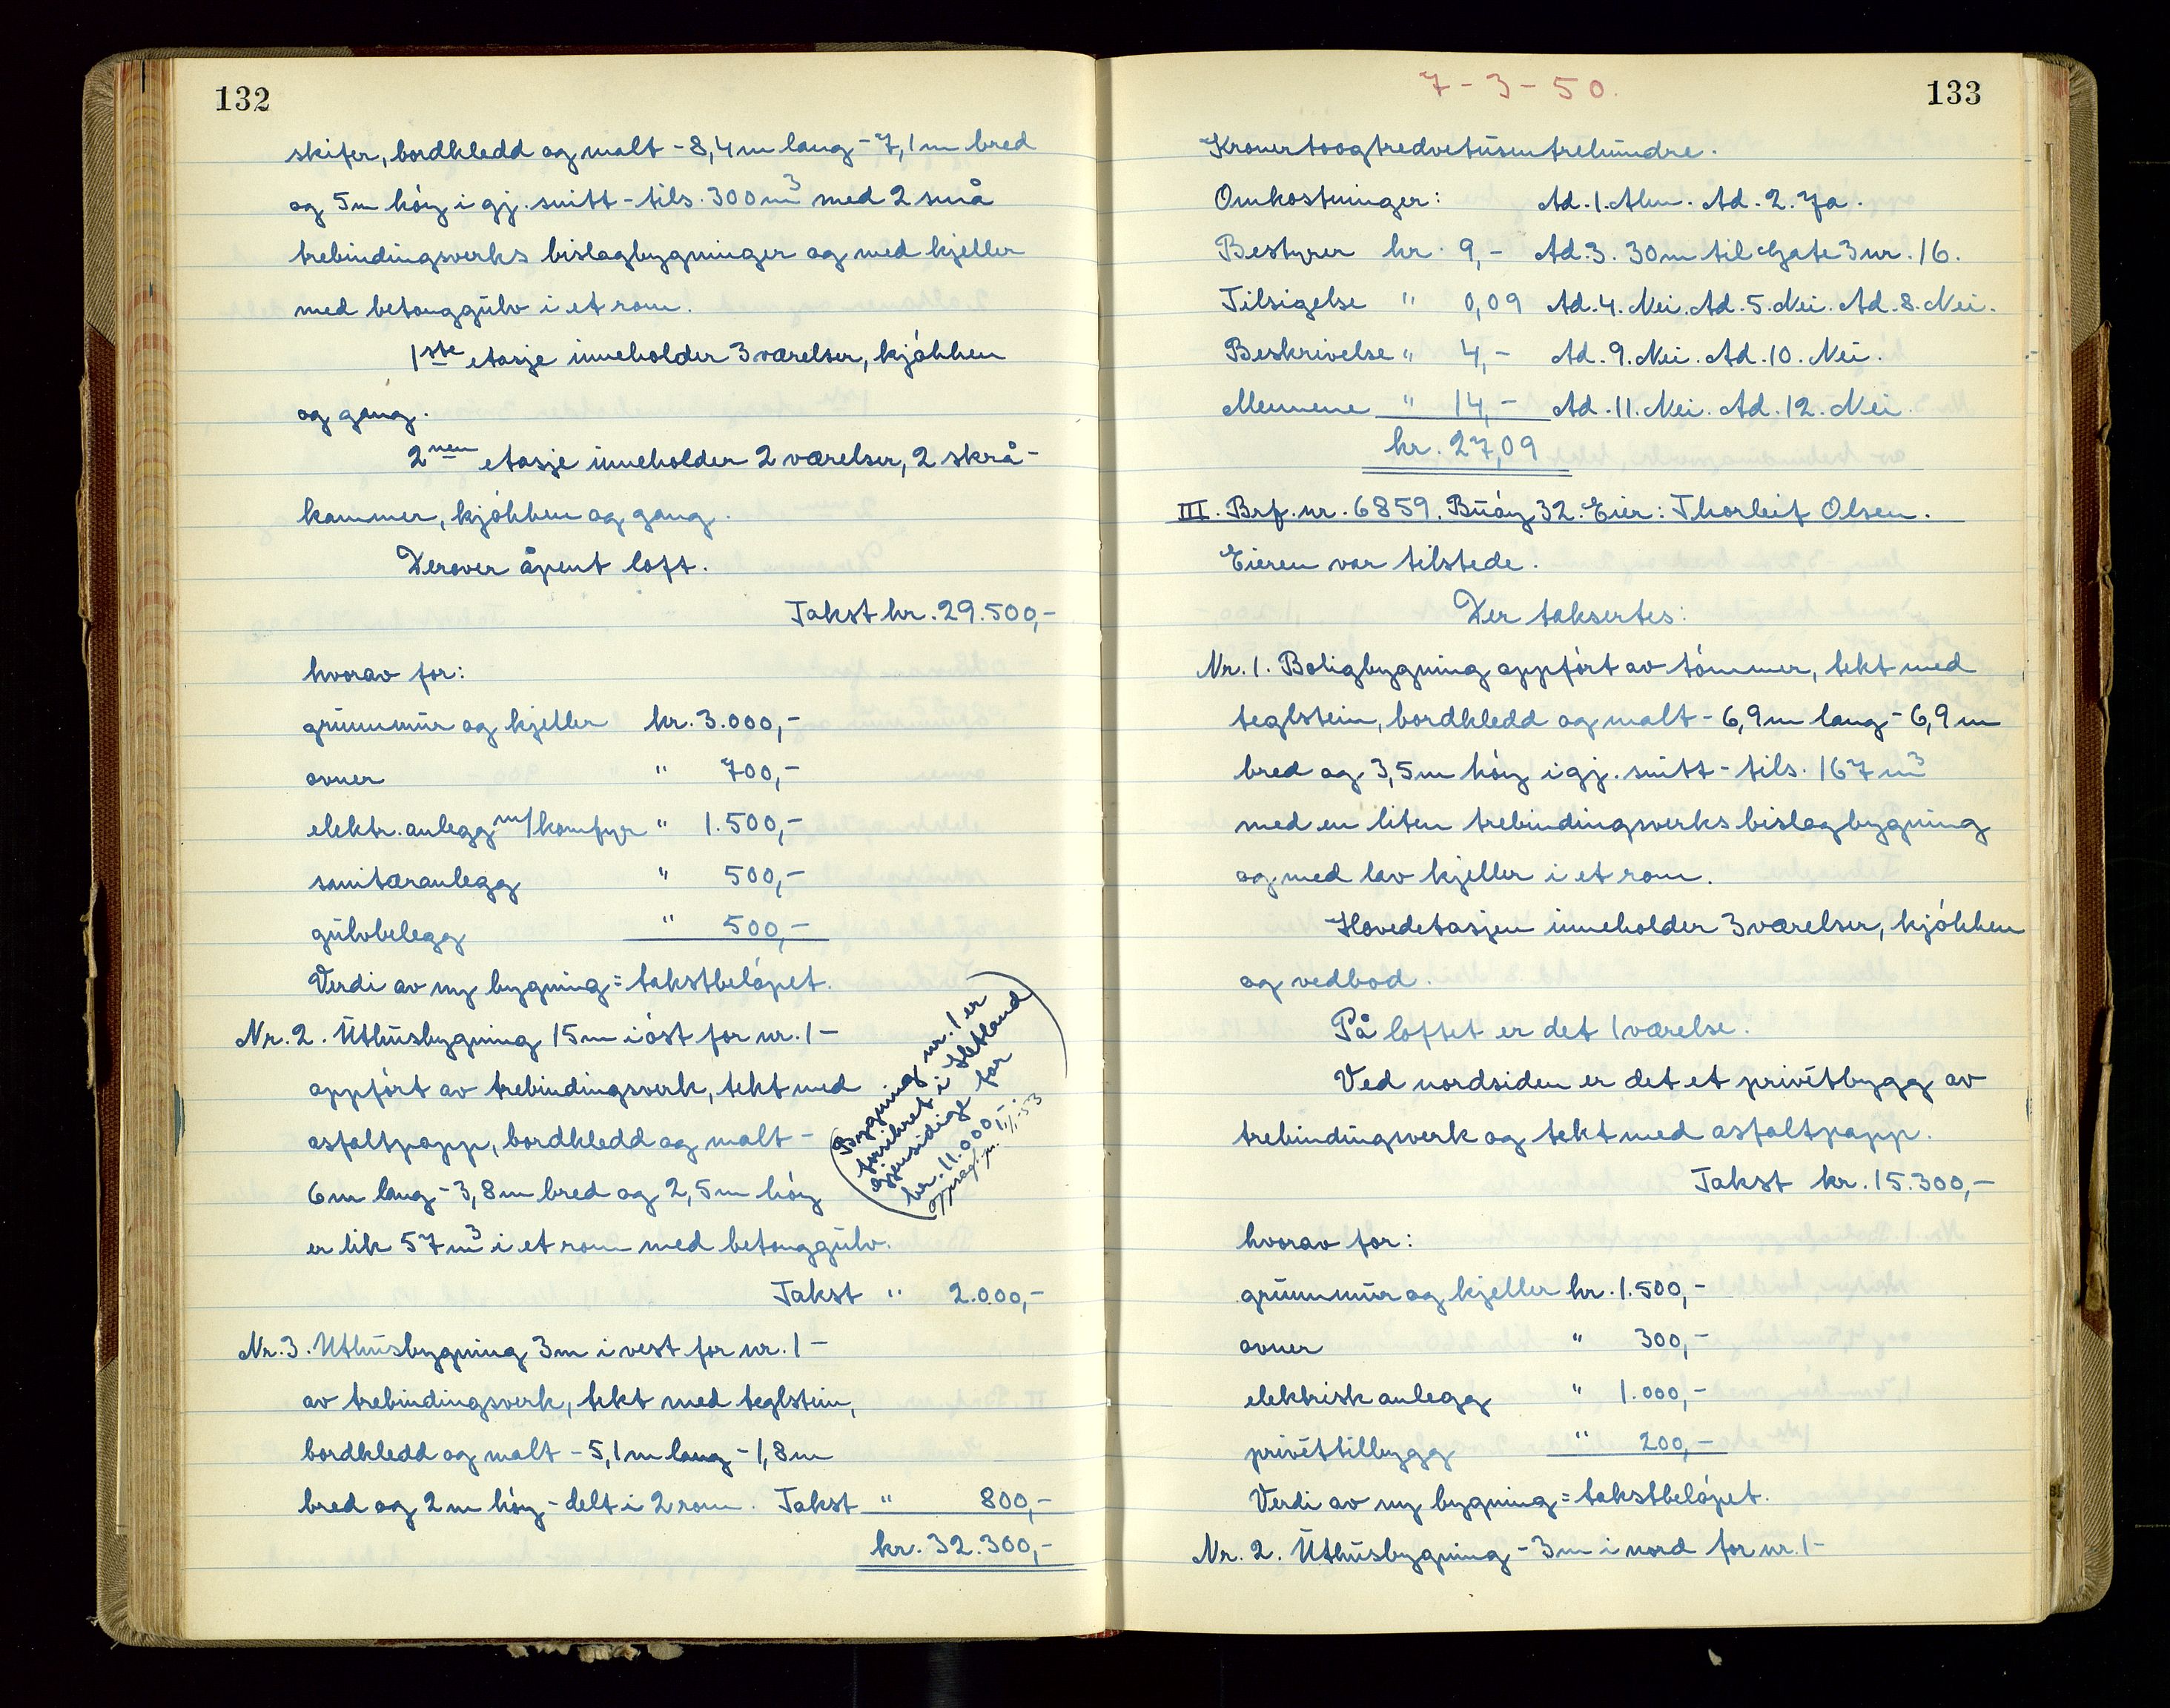 132
skifer, bordkledd og malt - 8,4 m lang - 7,1 m bred
og 5 m høy i gj. snitt - tils. 300 m³ med 2 små
trebindingsverks bislagbygninger og med kjeller
med betonggulv i et rom.
1ste etasje inneholder 3 værelser, kjøkken
og gang.
2nen etasje inneholder 2 værelser, 2 skrå-
kammer, kjøkken og gang.
Derover åpent loft.
Takst kr. 29.500,-
hvorav for:
grunnmur og kjeller kr. 3.000,-
ovner " 700,-
elektr. anlegg m/komfyr " 1.500,-
sanitæranlegg " 500,-
gulvbelegg " 500,-
Verdi av ny bygning = takstbeløpet.
Nr. 2. Uthusbygning 15 m i øst for nr. 1 -
oppført av trebindingsverk, tekt med
asfaltpapp, bordkledd og malt -
6 m lang - 3,8 m bred og 2,5 m høy
er lik 57 m³ i et rom med betonggulv.
Takst " 2.000,-
(Bygning nr. 1 er
forsikret i Hetland
gjensidige for
kr. 11.000,-.
Nr. 3. Uthusbygning 3 m i vest for nr. 1 -
av trebindingsverk, tekt med teglstein,
bordkledd og malt - 5,1 m lang - 1,8 m
bred og 2 m høy - delt i 2 rom. Takst " 800,-
kr. 32.300,-
7-3-50.
133
Kronertoogtredvetusentrehundre.
Omkostninger: Ad. 1. Alm. Ad. 2. Ja.
Bestyrer kr. 9,- Ad. 3. 30 m til Gate 3 nr. 16.
Tilsigelse " 0,09 Ad. 4. Nei. Ad. 5. Nei. Ad. 8. Nei.
Beskrivelse " 4,- Ad. 9. Nei. Ad. 10. Nei.
Mennene " 14,- Ad. 11. Nei. Ad. 12. Nei.
kr. 27,09
III. Brf. nr. 6859. Buøy 32. Eier: Thorleif Olsen.
Eieren var tilstede.
Der taksertes:
Nr. 1. Boligbygning oppført av tømmer, tekt med
teglstein, bordkledd og malt - 6,9 m lang - 6,9 m
bred og 3,5 m høy i gj. snitt - tils. 167 m³
med en liten trebindingsverks bislagbygning
og med lav kjeller i et rom.
Hovedetasjen inneholder 3 værelser, kjøkken
og vedbod.
På loftet er det 1 værelse.
Ved nordsiden er det et privétbygg av
trebindingverk og tekt med asfaltpapp.
Takst kr. 15.300,-
hvorav for:
grunnmur og kjeller kr. 1.500,-
ovner " 300,-
elektrisk anlegg " 1.000,-
privéttilbygg " 200,-
Verdi av ny bygning = takstbeløpet.
Nr. 2. Uthusbygning - 3 m i nord for nr. 1 -